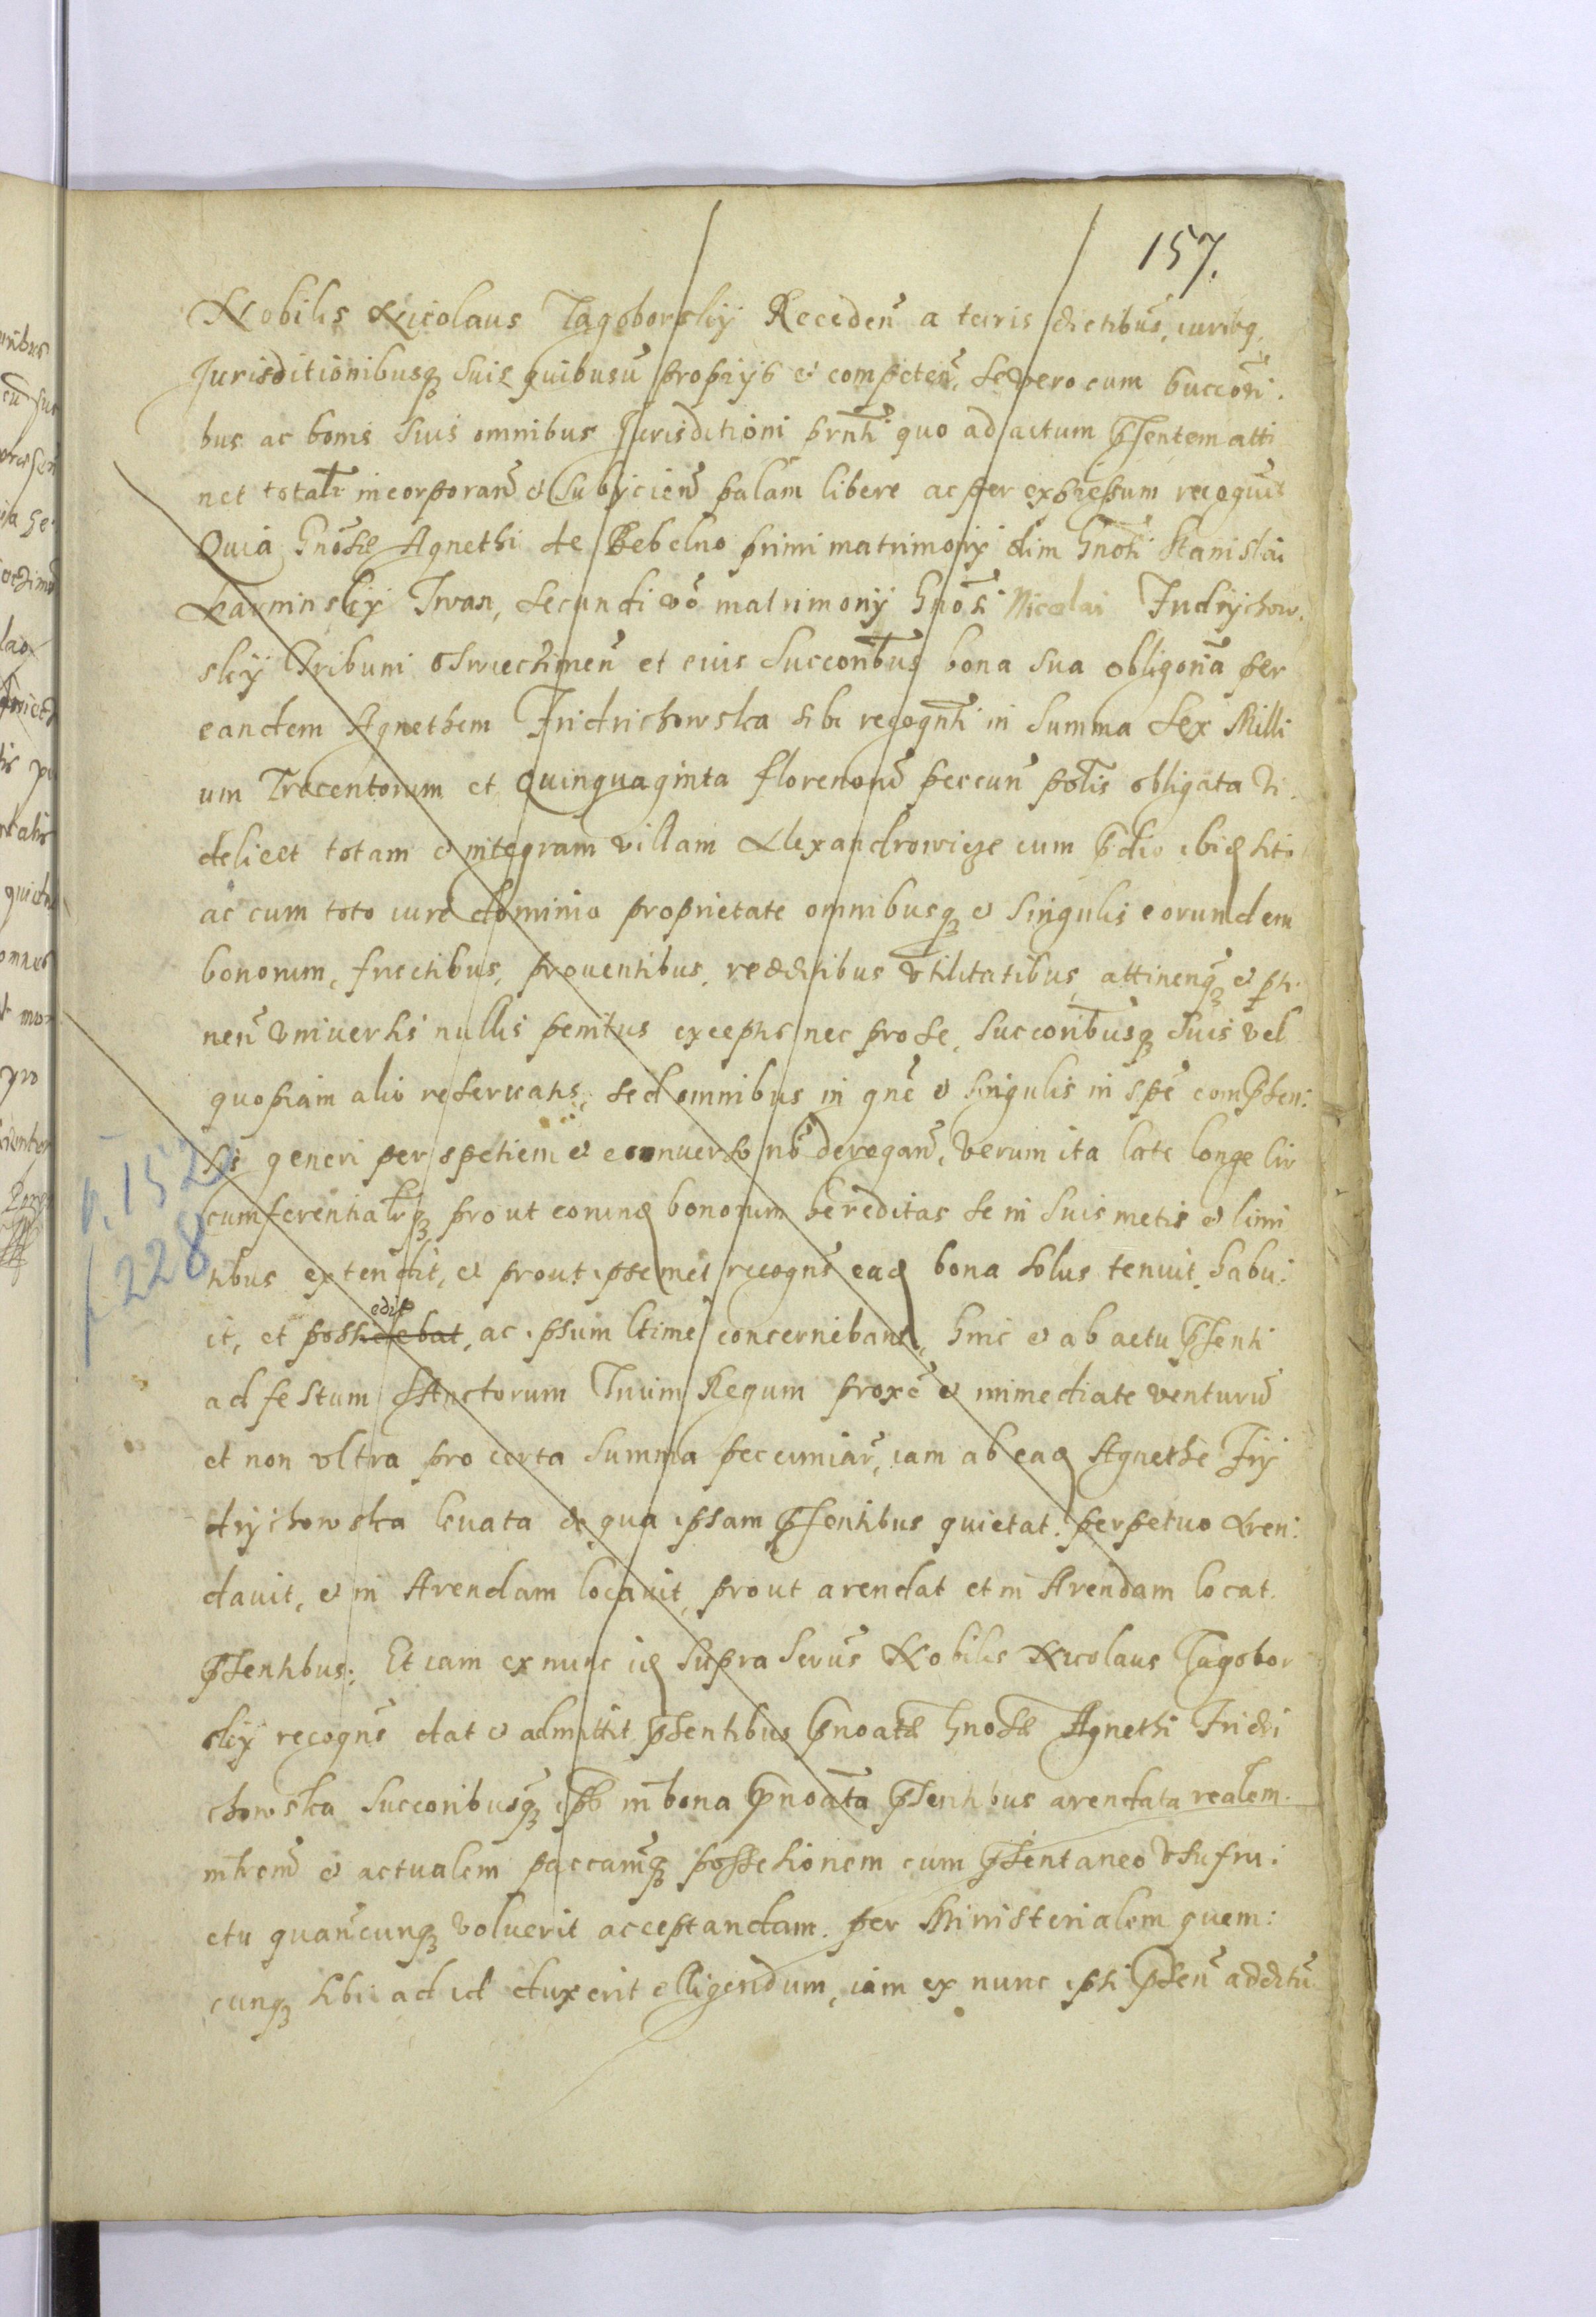 157.
Nobilis Nicolaus Tagoborskÿ Receden̄ a terris dictibus, iuribq
Jurisditionibusq suis quibusū proprÿs et competen̄, se vero cum succori:
bus ac bonis suis omnibus Jurisditioni prn̄ti quo ad actum p̄sentem atti
net totalr incorporan̄ et subÿcien̄ palam libere ac per expressum recogūit
Quia Gn̄osæ Agnethi de Bebelno primi matrimonÿ olim Gn̄osi Stanislai
Karninskÿ Iwan, secundi vō matrimonÿ Gn̄osi Nicolai Fridrÿchow.
skÿ Tribuni Oswiecimen̄ et eius succoribus bona sua obligoria per
eandem Agnethem Fridrichowska sibi recogn̄ti in summa sex Milli
um Trecentorum et Quinquaginta florenorū peccun̄ polis obligata Vi.
delicet totam et integram villam Alexandrowicze cum p̄dio ibid sito
ac cum toto iure dominio proprietate omnibusq et singulis eorundem
bonorum, fructibus, prouentibus, redditibus vtilitatibus, attinenq et pti
nen̄ vniuersis nullis penitus exceptis nec pro se, succoribusq suis vel
quopiam alio reseruatis, sed omnibus in gn̄e et singulis in spē compsen:
sis generi per spetiem et econuerso nō derogan̄, verum ita late longe cir
cumferentialrq prout eorund bonorum hereditas se in suis metis et limi
tibus extendit, et prout ipsemet recogn̄s ead bona solus tenuit, habu:
it, et possidebat edit, ac ipsum ltime concernebant, hinc et ab actu p̄senti
ad festum Sanctorum Trium Regum proxe et immediate venturū
et non vltra pro certa summa peccuniar, iam ab ead Agnethe Frÿ
drÿchowska leuata de qua ipsam p̄sentibus quietat. perpetuo Aren:
dauit, et in Arendam locauit, prout arendat et in Arendam locat.
p̄sentibus: Et iam ex nunc id supra scrūs Nobilis Nicolaus Tagobor
skÿ recogn̄s dat et admittit p̄sentibus p̄noatæ Gn̄osæ Agnethi Fridri
chowska succoribusq ips in bona p̄noata p̄sentibus arendata realem.
intrem et actualem paccamq possessionem cum p̄sentaneo vsufru:
ctu quancunq voluerit acceptandam. per Ministerialem quem:
cunq sibi ad id duxerit elligendum, iam ex nunc ipsi p̄sen̄ additū
p. 152
f. 228